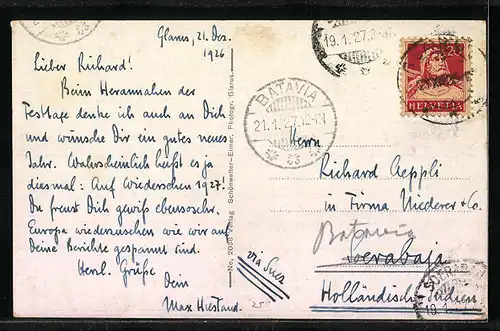 Glarus, 21. Dez.
1926
Lieber Richard!
Beim Herannahen der
Festtage denke ich auch an Dich
und wünsche Dir ein gutes neues
Jahr. Wahrscheinlich heißt es ja
diesmal: Auf Wiedersehen 1927!
Du freust Dich gewiß ebensosehr,
Europa wiederzusehen wie wir auf
Deine Berichte gespannt sind.
Herzl. Grüße
Dein
Max Hiestand.
No. 2038 Verlag Schönwetter-Elmer, Photogr. Glarus.
19.1.27.
BATAVIA
21.1.27.12-1N
HELVETIA
20
Herrn
Richard Aeppli
in Firma Niederer & Co.
Batavia
Soerabaja
Holländisch-Indien.
via Suez
25
SOERABAJA
19.1.